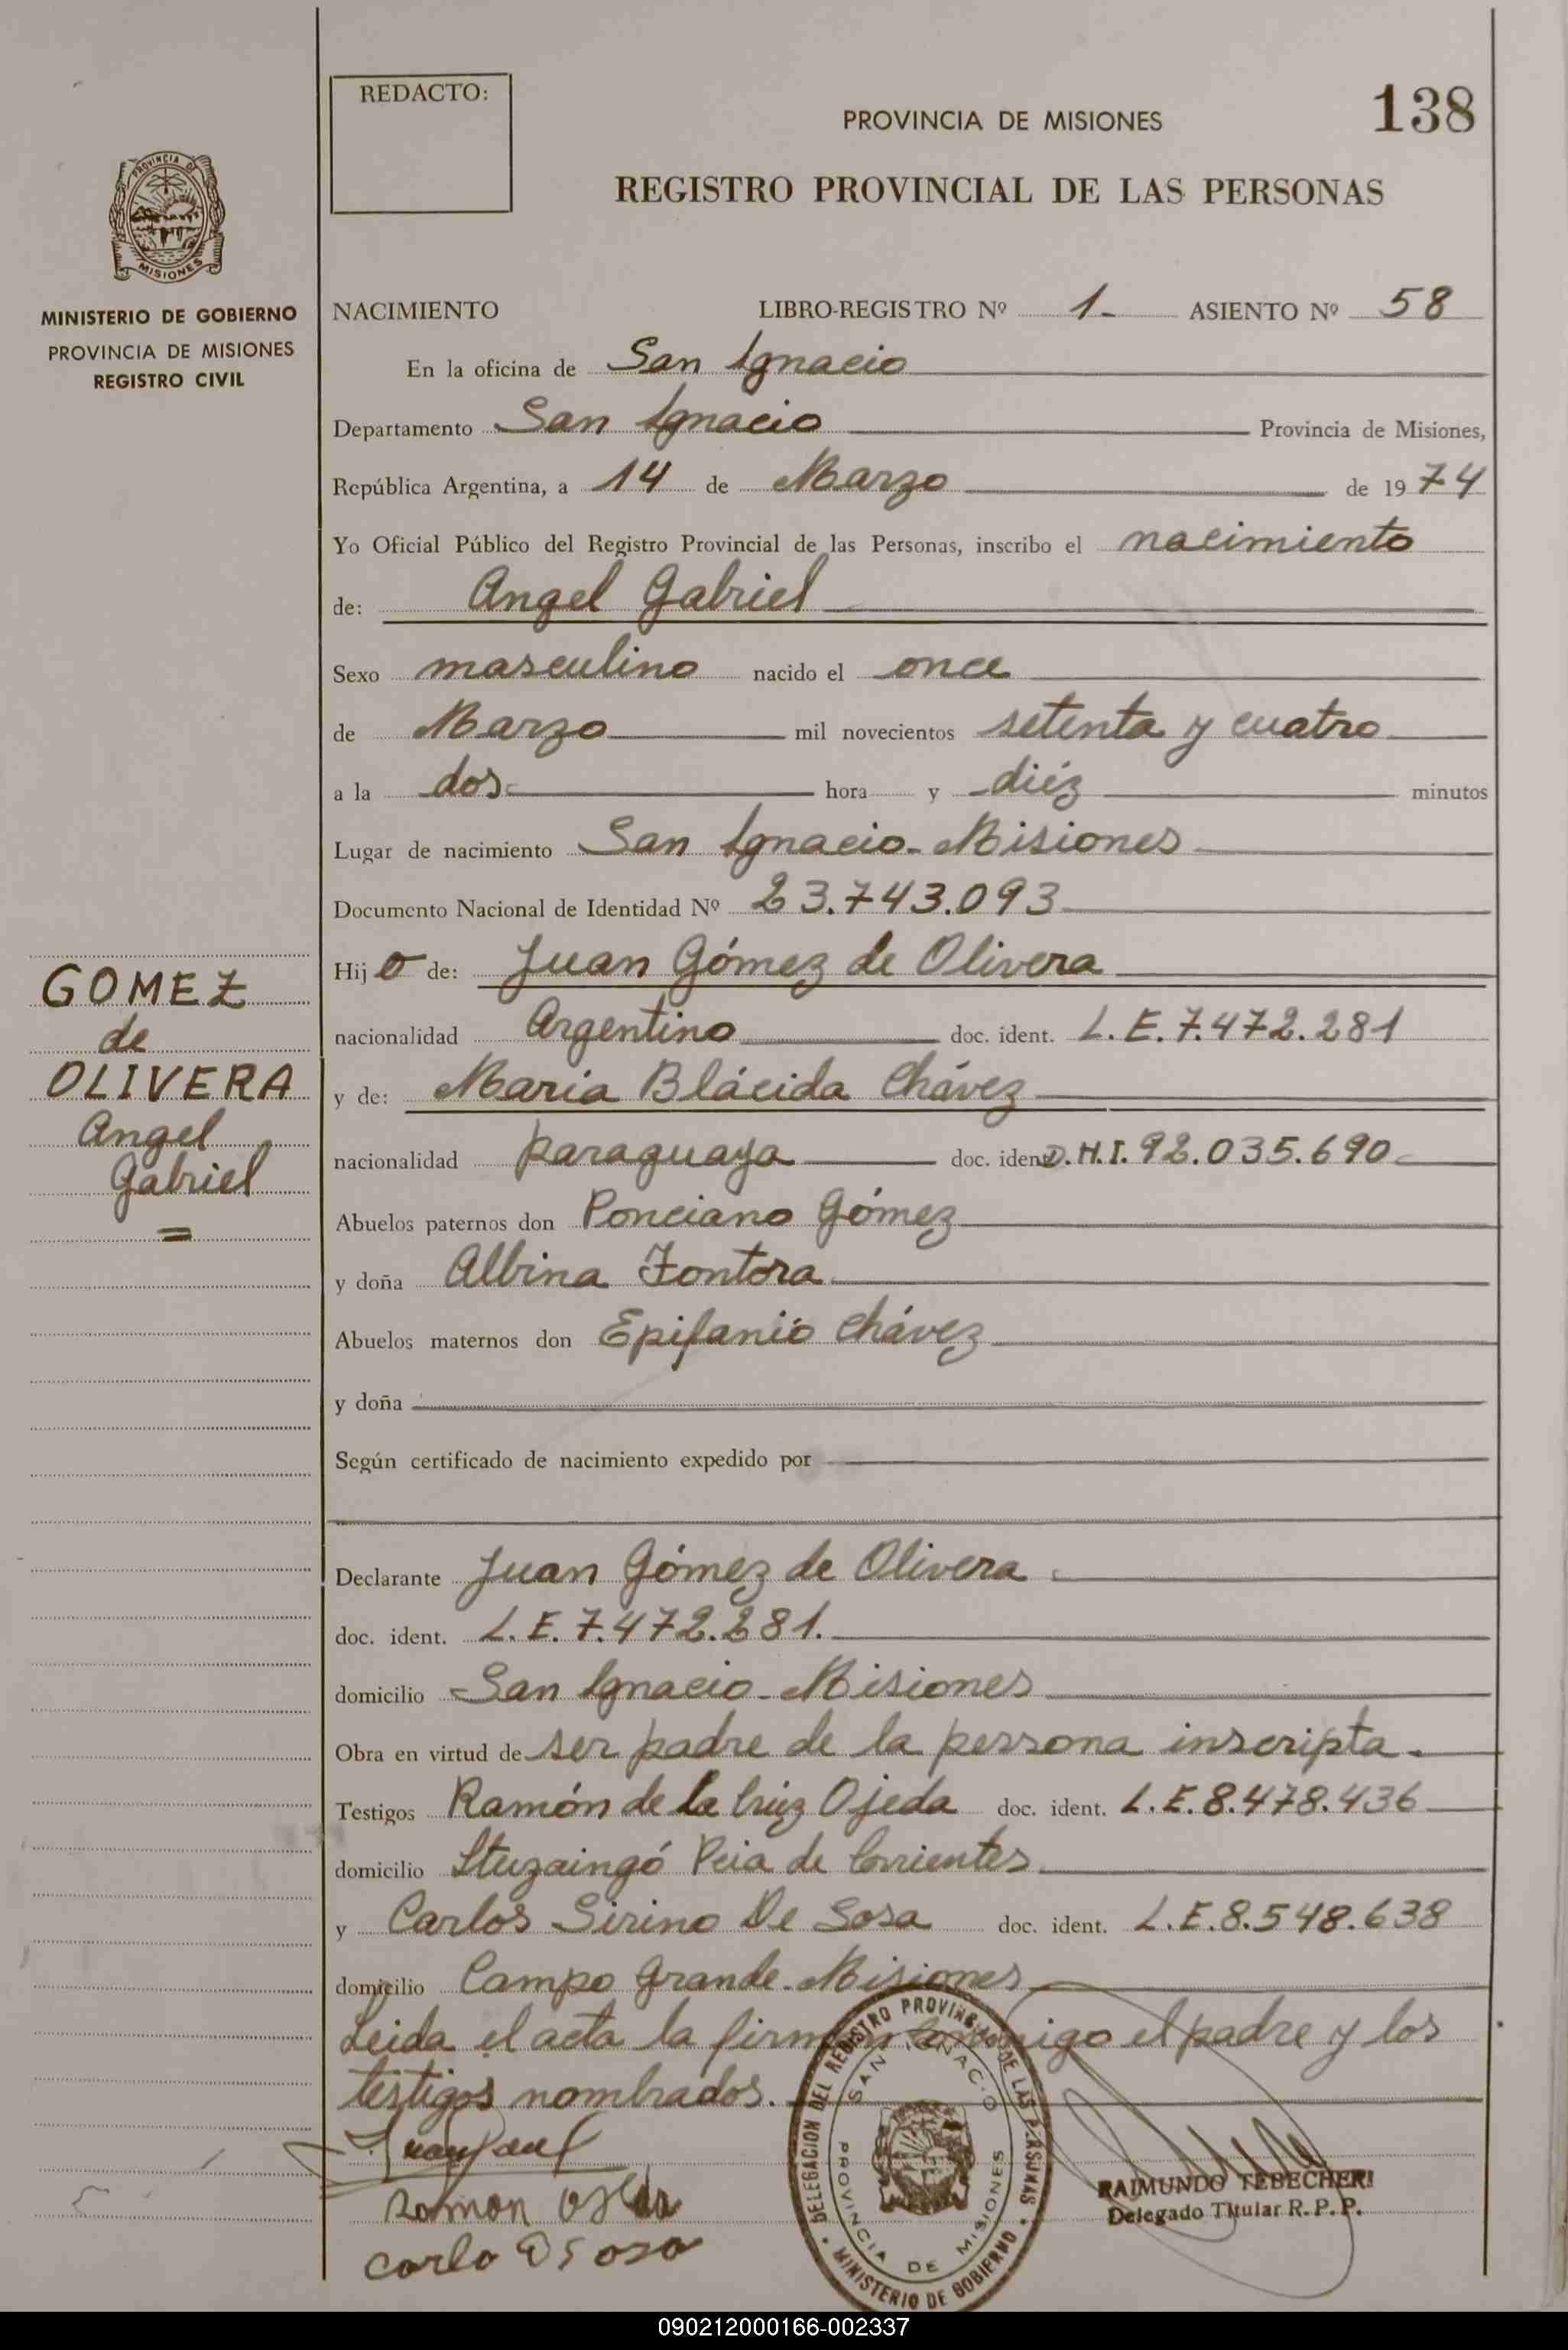 REDACTO:
138
PROVINCIA DE MISIONES
REGISTRO PROVINCIAL DE LAS PERSONAS
PROVINCIA DE
MISIONES
MINISTERIO DE GOBIERNO
PROVINCIA DE MISIONES
REGISTRO CIVIL
NACIMIENTO LIBRO-REGISTRO Nº 1- ASIENTO Nº 58
En la oficina de San Ignacio
Departamento San Ignacio Provincia de Misiones,
República Argentina, a 14 de Marzo de 1974
Yo Oficial Público del Registro Provincial de las Personas, inscribo el nacimiento
de: Angel Gabriel
Sexo masculino nacido el once
de Marzo mil novecientos setenta y cuatro
a la dos hora y diéz minutos
Lugar de nacimiento San Ignacio- Misiones
Documento Nacional de Identidad Nº 23.743.093
Hijo de: Juan Gómez de Olivera
nacionalidad Argentino doc. ident. L.E.7.472.281
y de: Maria Blácida Chávez
nacionalidad paraguaya doc. ident D.N.I. 92.035.690
Abuelos paternos don Ponciano Gómez
y doña Albina Fontora
Abuelos maternos don Epifanio Chávez
y doña
Según certificado de nacimiento expedido por
GOMEZ
de
OLIVERA
Angel
Gabriel
=
Declarante Juan Gómez de Olivera
doc. ident. L.E.7.472.281.
domicilio San Ignacio- Misiones
Obra en virtud de ser padre de la persona inscripta.
Testigos Ramón de la Cruz Ojeda doc. ident. L.E.8.478.436
domicilio Ituzaingó Pcia de Corrientes
y Carlos Sirino De Sosa doc. ident. L.E.8.548.638
domicilio Campo Grande- Misiones
Leida el acta la firman conmigo el padre y los
testigos nombrados.
Ramon
Carlo D Sosa
DELEGACION DEL REGISTRO PROVINCIAL DE LAS PERSONAS
MINISTERIO DE GOBIERNO
SAN IGNACIO
PROVINCIA DE MISIONES
RAIMUNDO TEBECHERI
Delegado Titular R.P.P.
090212000166-002337